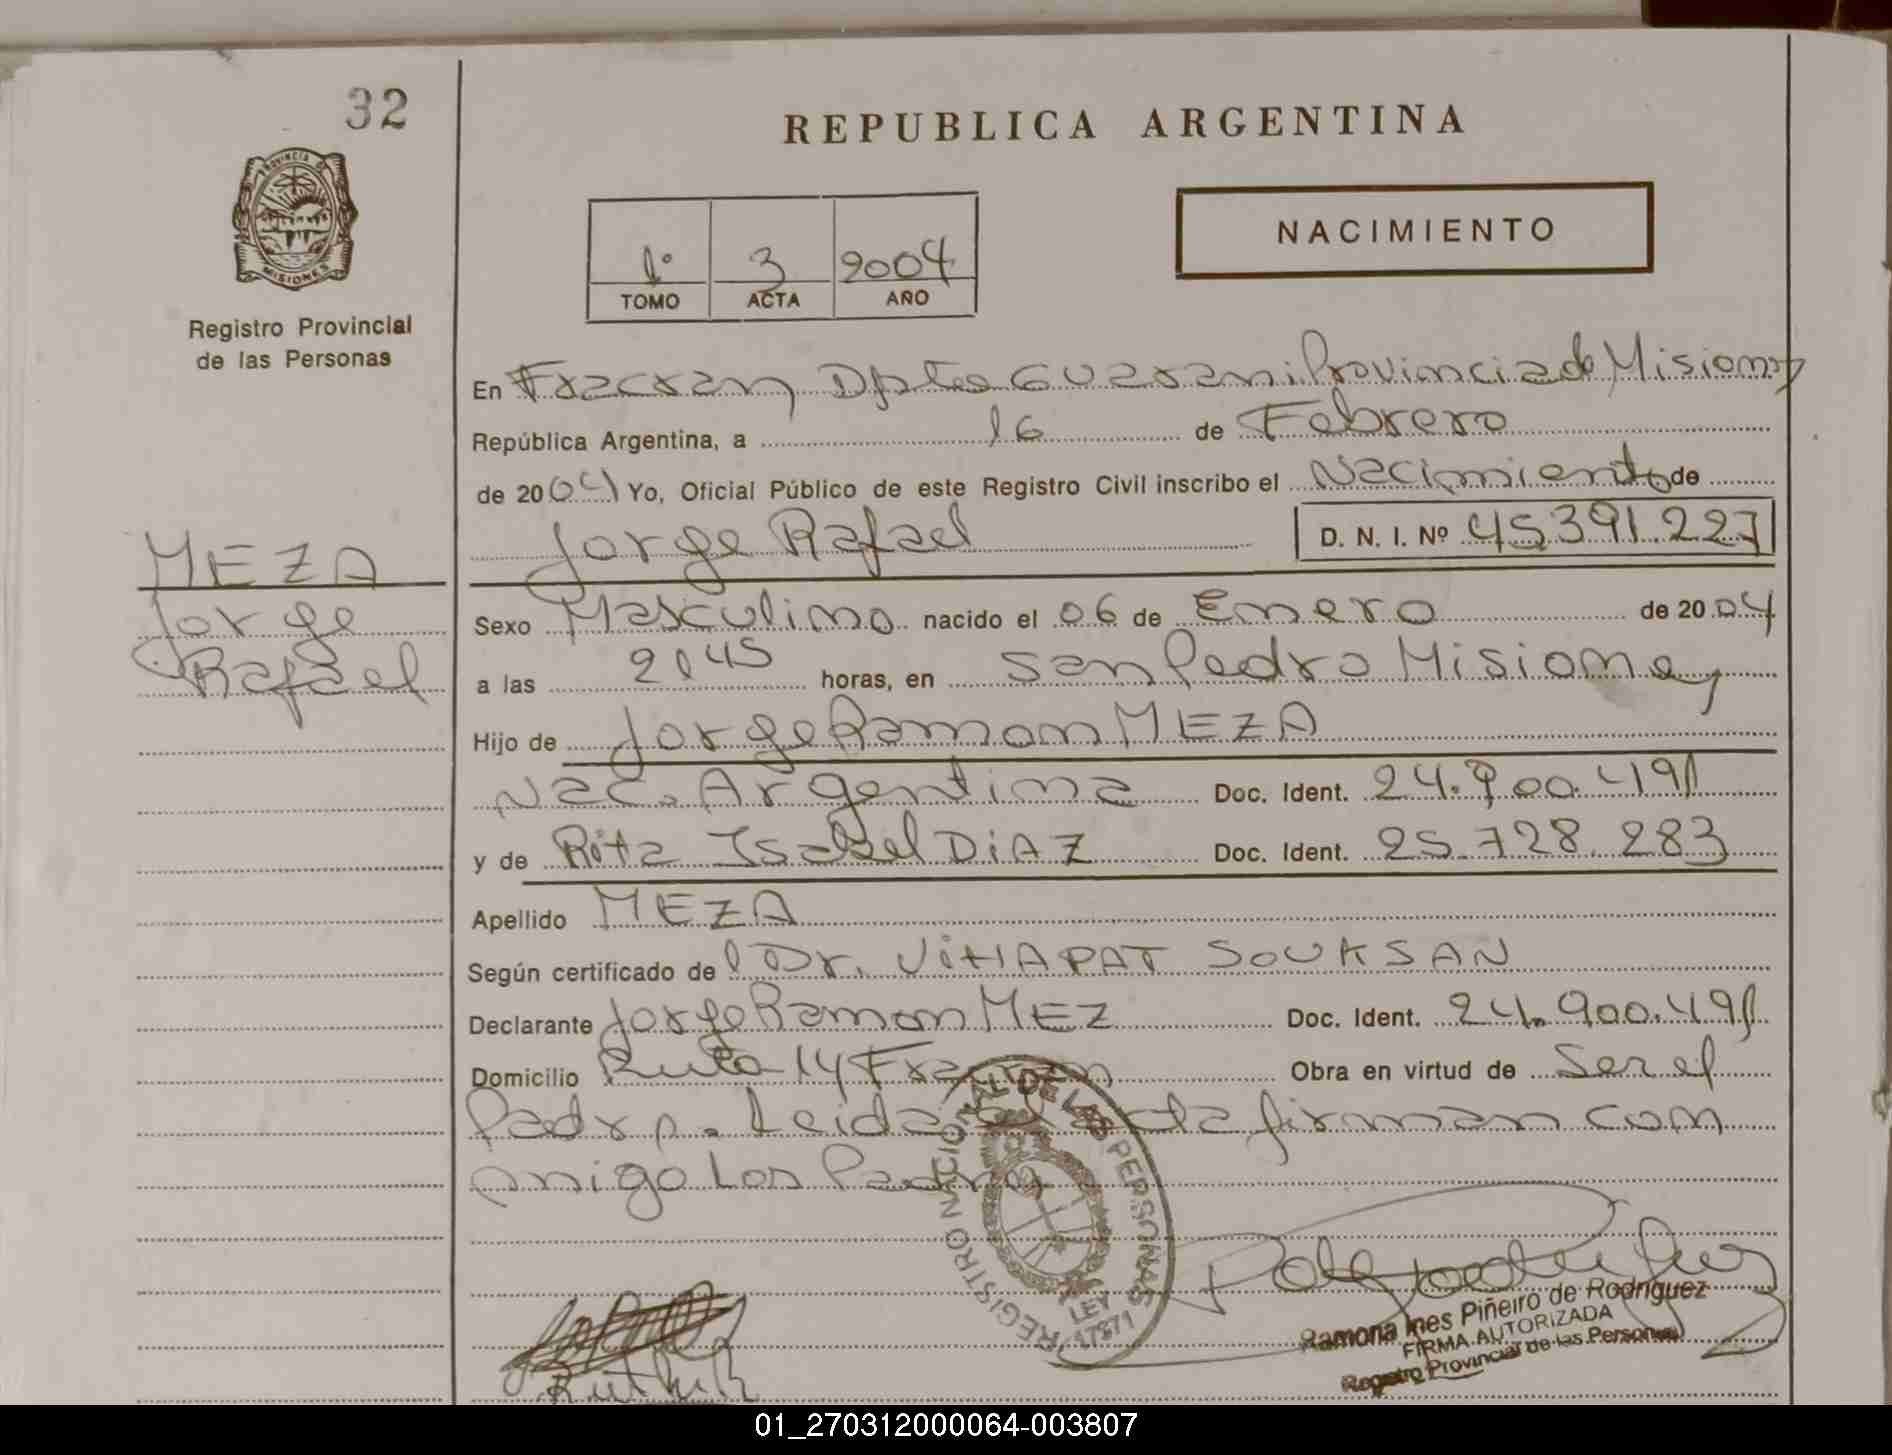 32
REPUBLICA ARGENTINA
PROVINCIA DE
MISIONES
Registro Provincial
de las Personas
1º 3 2004
TOMO ACTA AÑO
NACIMIENTO
En Fracran Dpto Guarani Provincia de Misiones
República Argentina, a 16 de Febrero
de 2004 Yo, Oficial Público de este Registro Civil inscribo el Nacimiento de
Jorge Rafael D. N. I. Nº 45.391.227
MEZA
Jorge
Rafael
Sexo Masculino nacido el 06 de Enero de 2004
a las 2145 horas, en San Pedro Misiones
Hijo de Jorge Ramon MEZA
Nac. Argentina Doc. Ident. 24.900.491
y de Rita Isabel DiAZ Doc. Ident. 25.728.283
Apellido MEZA
Según certificado de Dr. ViHAPAT SOUKSAN
Declarante Jorge Ramon MEZ Doc. Ident. 24.900.491
Domicilio Ruta 14 Fracran Obra en virtud de Ser el
Padre. Leida el acta firman con
migo Los Padres
REGISTRO NACIONAL DE LAS PERSONAS
LEY
17671
Ramona Ines Piñeiro de Rodriguez
FIRMA AUTORIZADA
Registro Provincial de las Personas
01_270312000064-003807